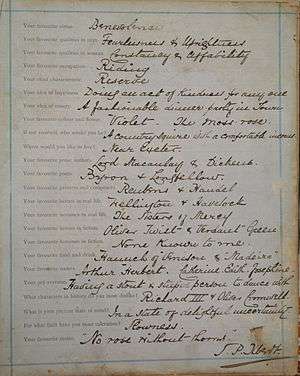 Your favourite virtue. Benevolence
Your favourite qualities in man. Fearlessness & Uprightness
Your favourite qualities in woman. Constancy & Affability
Your favourite occupation. Riding
Your chief characteristic. Reserve
Your idea of happiness. Doing an act of kindness to any one
Your idea of misery. A fashionable dinner party in Town
Violet The Moss rose
If not yourself, who would you be? A country Squire with a comfortable income
Where would you like to live? Near Exeter
Your favourite prose authors. Lord Macaulay & Dickens.
Your favourite poets. Byron & Longfellow.
Your favourite painters and composers. Reubens & Handel
Your favourite heroes in real life. Wellington & Havelock
Your favourite heroines in real life. The Sisters of Mercy
Oliver Twist & Verdant Green
None Known to me
Your favourite food and drink. Haunch of Venison & Madeira
Your favourite names. Arthur Herbert. Catherine Edith Josephine
Your pet aversion. Having a stout & stupid person to dance with
What characters in history do you most dislike? Richard III & Oliver Cromwell
What is your present state of mind? In a state of delightful uncertainty
For what fault have you most toleration? Slowness
Your favourite motto. "No rose without thorns"